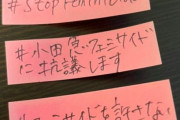 #StopFeminicide
#小田急フェミサイド
に抗議します
#フェミサイドを許さない